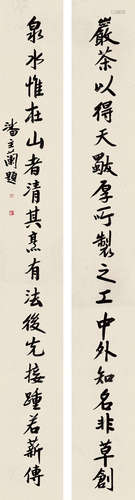 巖茶以得天斁厚所製之工中外知名非草創
泉水惟在山者清其烹有法後先接踵若薪傳
潘主蘭題